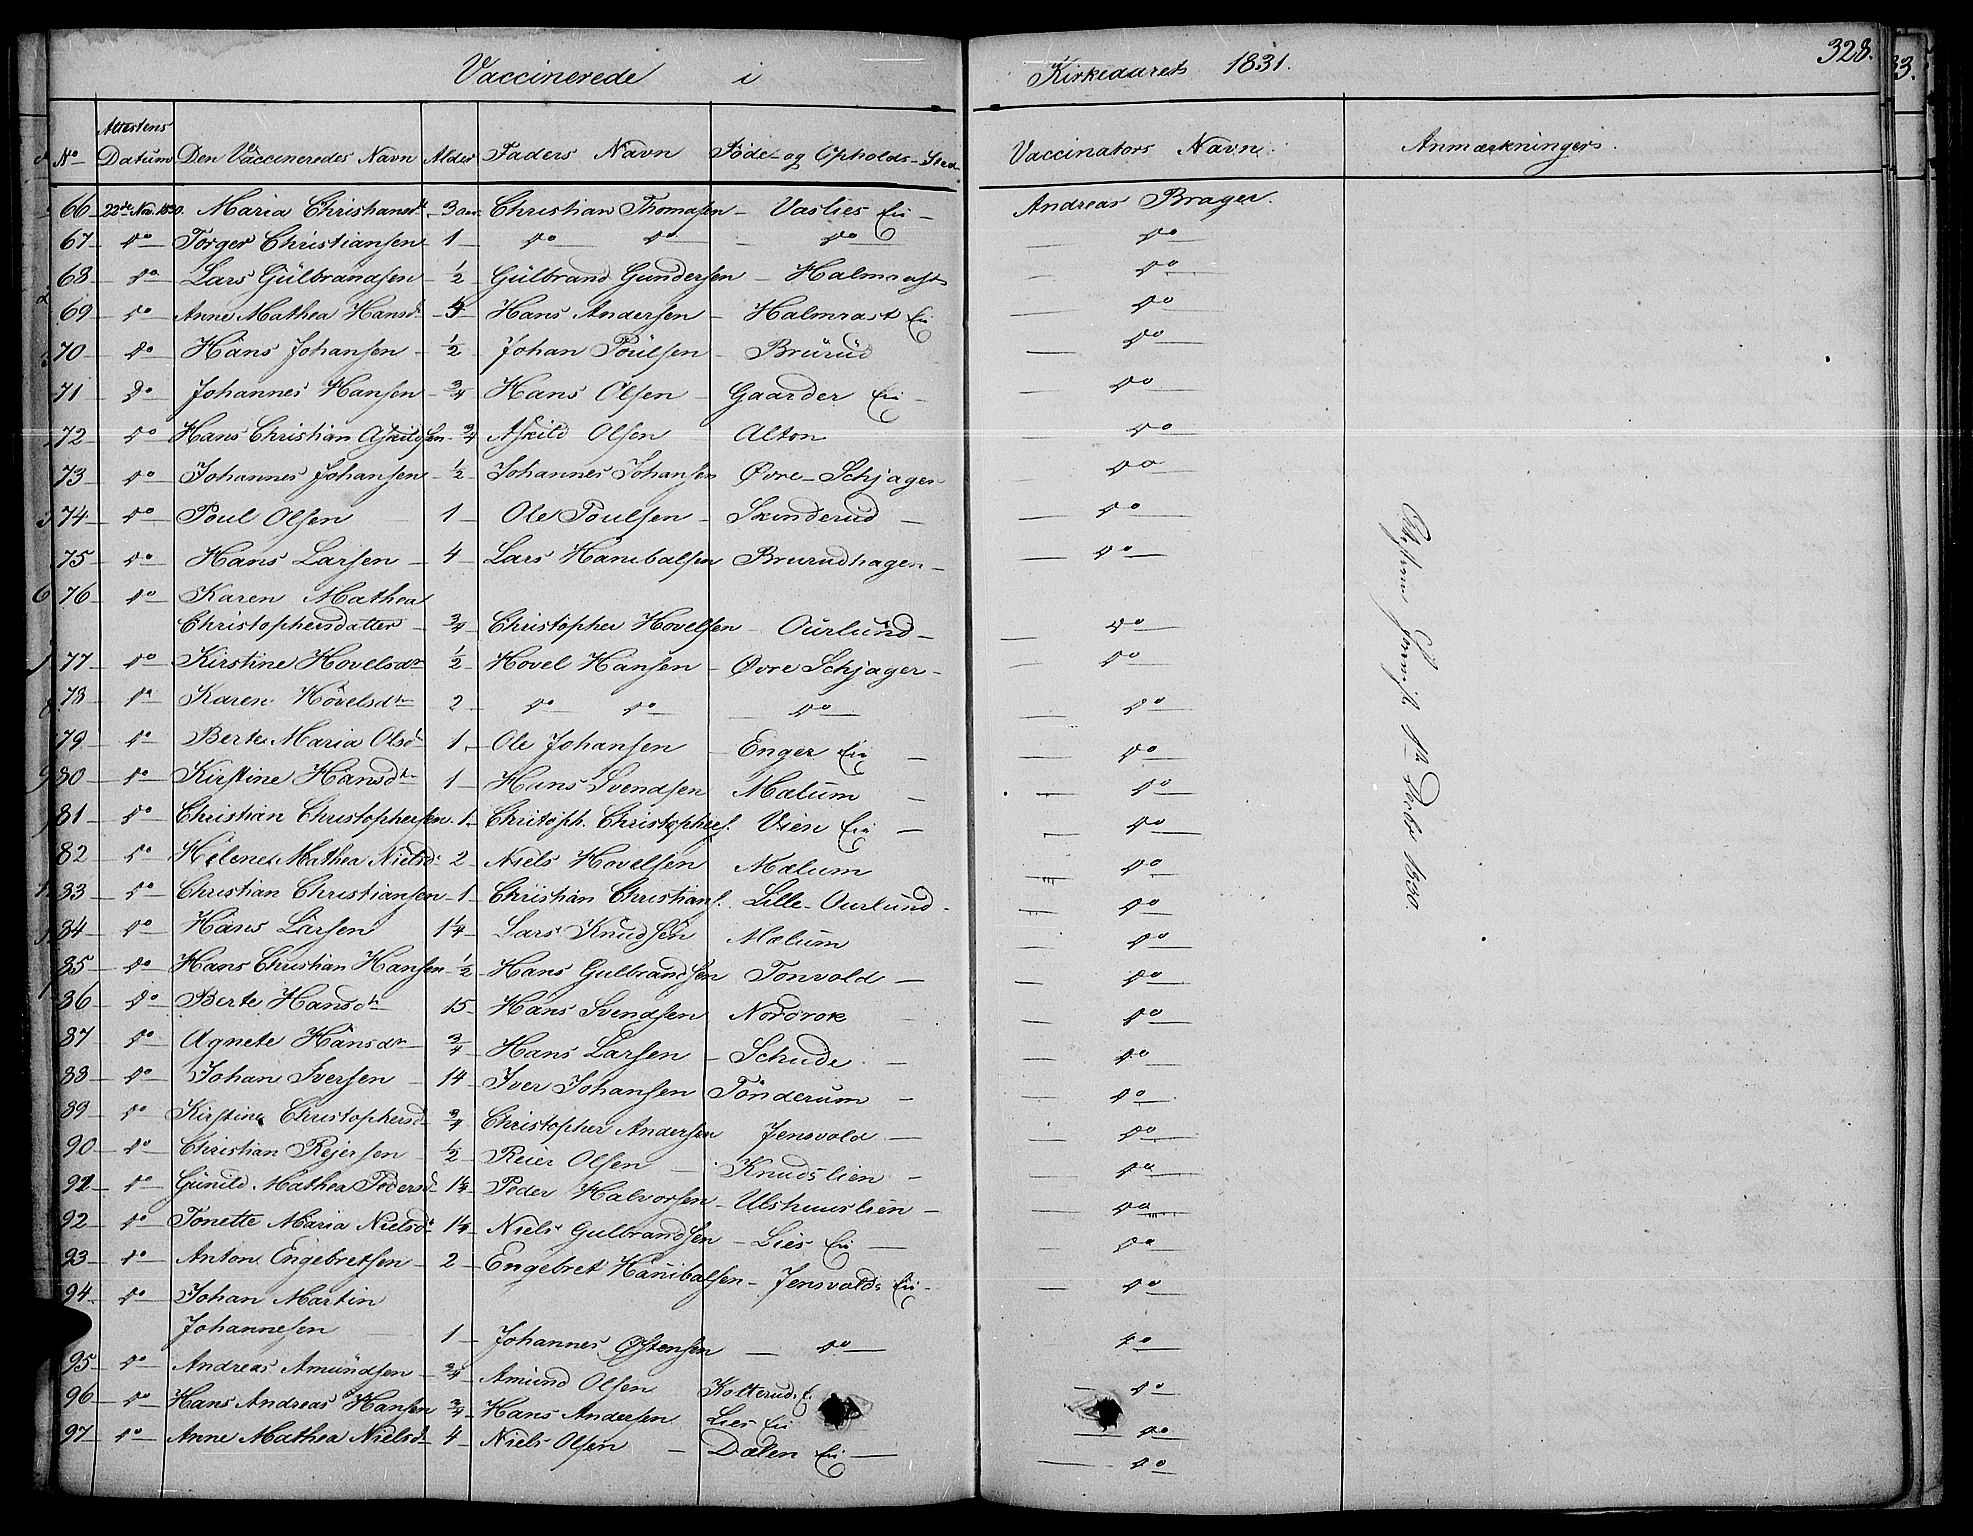 328.
Vaccinerede i Kirkeaaret 1831.
No Attestens Datum Den Vaccineredes Navn Alder Faders Navn Føde- og Opholds-Sted Vaccinators Navn. Anmærkninger.
66 22de Nov. 1830. Maria Christiansdtr 3 aar Christian Thomasen Vaslies Ei Andreas Brager.
67 Do Torger Christiansen 1 Do Do Do Do
68 Do Lars Gulbrandsen 1/2 Gulbrand Gundersen Halmrast Do
69 Do Anne Mathea Hansd Hans Andersen Halmrast Ei Do
70 Do Hans Johansen 1/2 Johan Poulsen Brurud Do
71 Do Johannes Hansen 3/4 Hans Olsen Gaarder Ei Do
72 Do Hans Christian Askildsen 3/4 Askild Olsen Alton Do
73 Do Johannes Johansen 1/2 Johannes Johansen Øvre Schjager Do
74 Do Poul Olsen 1 Ole Poulsen Skinderud Do
75 Do Hans Larsen 4 Lars Hanibalsen Brurudhagen Do
76 Do Karen Mathea
Christophersdatter 3/4 Christopher Hovelsen Ourlund Do
77 Do Kirstine Hovelsdr 1/2 Hovel Hansen Øvre Schjager Do
78 Do Karen Hovelsdtr 2 Do Do Do Do
79 Do Berte Maria Olsd 1 Ole Johansen Enger Ei Do
80 Do Kirstine Hansdtr 1 Hans Svendsen Mælum Do
81 Do Christian Christophersen 1 Chritoph. Christophers. Vien Ei Do
82 Do Helene Mathea Nielsd 2 Niels Hovelsen Mælum Do
83 Do Christian Christiansen 1 Christian Christians. Lille Ourlund Do
84 Do Hans Larsen 14 Lars Knudsen Mælum Do
85 Do Hans Christian Hansen 1/2 Hans Gulbrandsen Tonvold Do
86 Do Berte Hansdtr 15 Hans Svendsen Nordrok Do
87 Do Agnete Hansdr 3/4 Hans Larsen Schude Do
88 Do Johan Iversen 14 Iver Johansen Tønderum Do
89 Do Kirstine Christophersd 3/4 Christopher Andersen Jensvold Do
90 Do Christian Rejersen 1/2 Reier Olsen Knudslien Do
91 Do Gunild Mathea Pedersd Peder Halvorsen Ulshuuslien Do
92 Do Tonette Maria Nielsd Niels Gulbrandsen Lies Ei Do
93 Do Anton Engebretsen 2 Engebret Hanibalsen Jensvolds Ei Do
94 Do Johan Martin
Johannesen 1 Johannes Østensen Do Do
95 Do Andreas Amundsen 3/4 Amund Olsen Kolterud E. Do
96 Do Hans Andreas Hansen 3/4 Hans Andersen Lies Ei Do
97 Do Anne Mathea Nielsd 4 Niels Olsen Dælen Ei Do
1830.